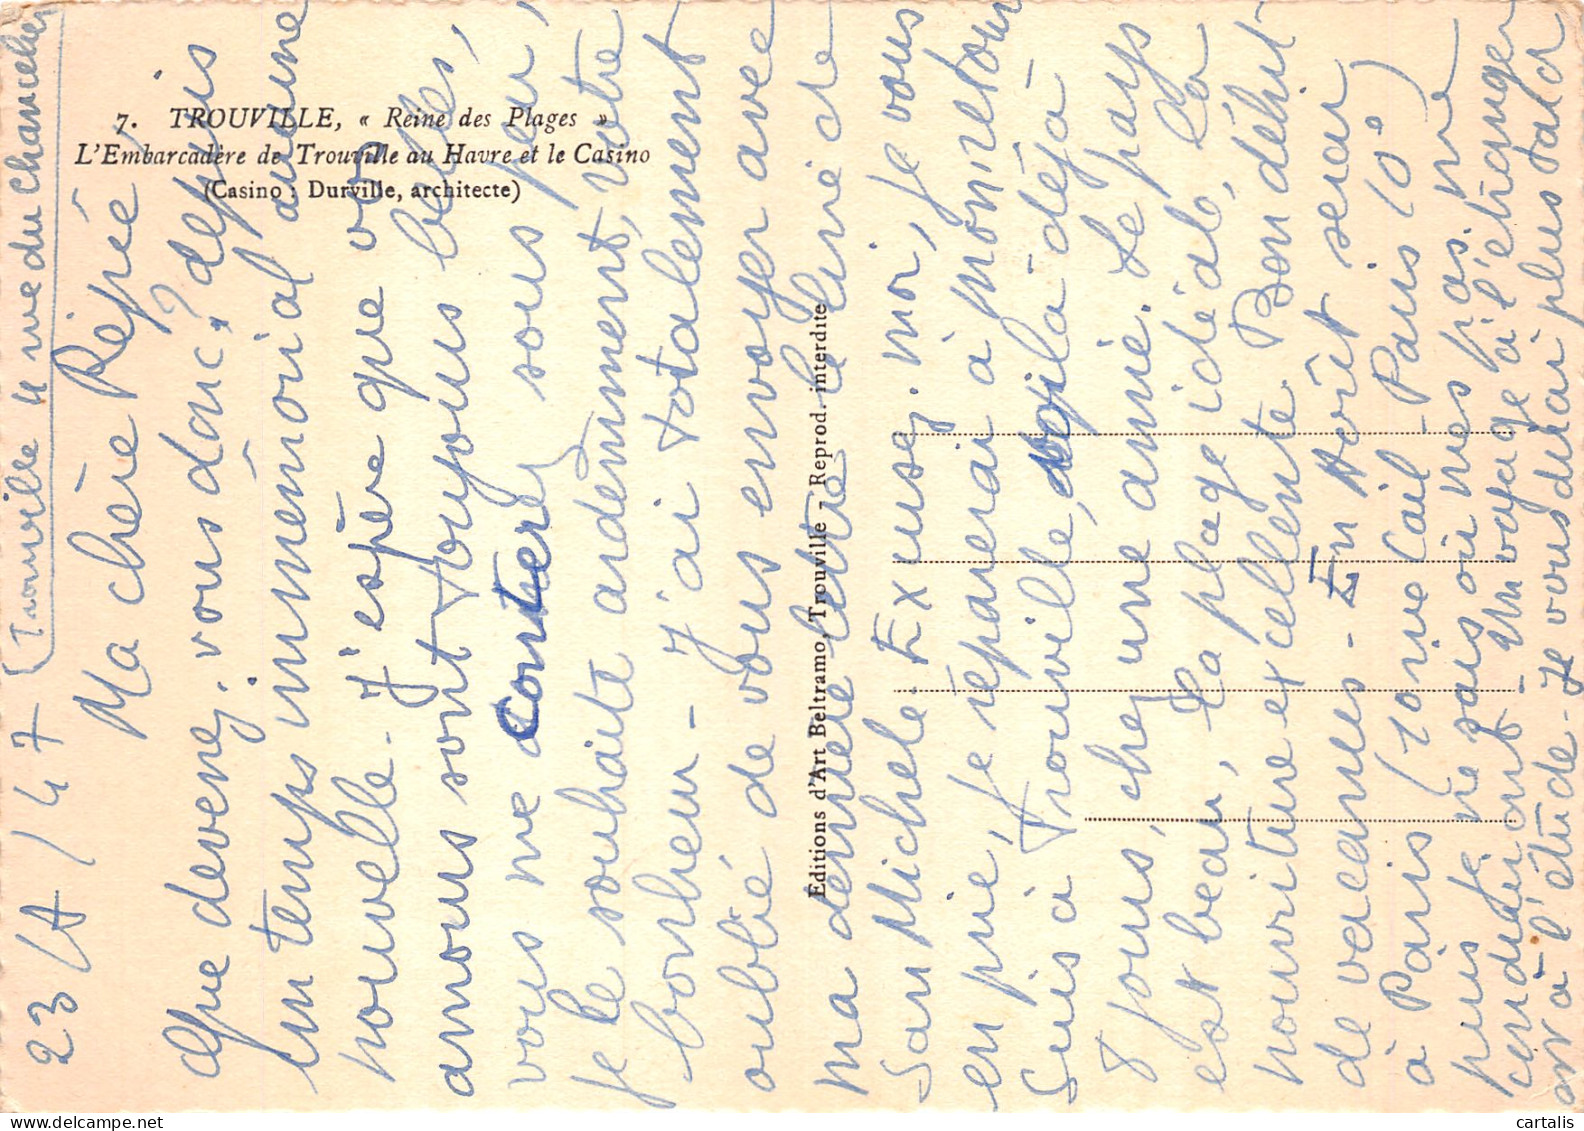 7. TROUVILLE, « Reine des Plages »
L'Embarcadère de Trouville au Havre et le Casino
(Casino : Durville, architecte)
Editions d'Art Beltramo, Trouville - Reprod. interdite
23 / / 47 (Trouville 4 rue du Chancelier
Ma chère Pépée
Que devenez-vous donc? depuis
un temps immémorial aucune
nouvelle. J'espère que vos
amours sont toujours belles,
vous me conterez sous peu,
je le souhaite ardemment, votre
bonheur - J'ai totalement
oublié de vous envoyer avec
ma dernière lettre le livre de
San Michele. Excusez-moi, je vous
en prie, je réparerai à mon retour
Suis à Trouville, voilà déjà
8 jours, chez une amie. Le pays
est beau, la plage idéale, la
nourriture excellente. Bon début
de vacances - En Août serai
à Paris (10 rue Cail - Paris 10°)
puis ne sais où mes pas me
conduiront - Un voyage à l'étranger
est à l'étude - Je vous dirai plus tard
cartalis